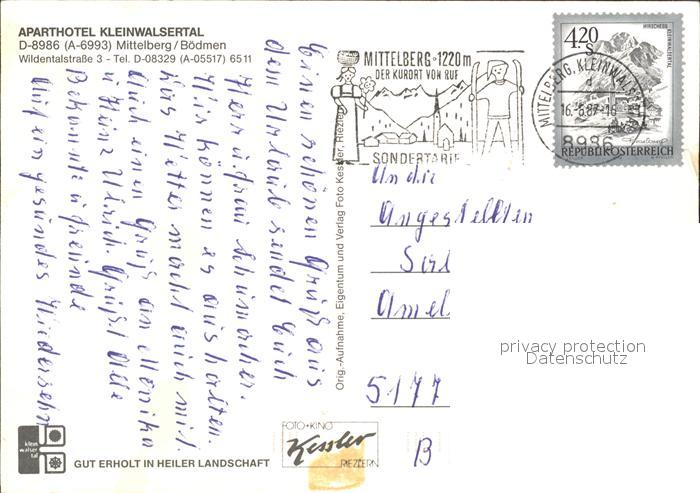 APARTHOTEL KLEINWALSERTAL
D-8986 (A-6993) Mittelberg / Bödmen
Wildentalstraße 3 - Tel. D-08329 (A-05517) 6511
Einen schönen Gruß aus
dem Urlaub sendet Euch
Herr u. Frau Schumacher.
Wir können es aushalten.
Das Wetter macht auch mit.
Auch einen Gruß an Monika
u. Heinz Ulrich. Grüßt Alle
Bekannte u. Freunde
Auf ein gesundes Wiedersehn
klein
walser
tal
GUT ERHOLT IN HEILER LANDSCHAFT
Orig.-Aufnahme, Eigentum und Verlag Foto Kessler, Riezlern
FOTO+KINO
Kessler
RIEZLERN
MITTELBERG · 1220m
DER KURORT VON RUF
SONDERTARIF
MITTELBERG, KLEINWALS
16. 6. 87-16
8986
4.20
S
HIRSCHEGG
KLEINWALSERTAL
REPUBLIK ÖSTERREICH
An die
Angestellten
Sarl
Amel
5177
B
privacy protection
Datenschutz